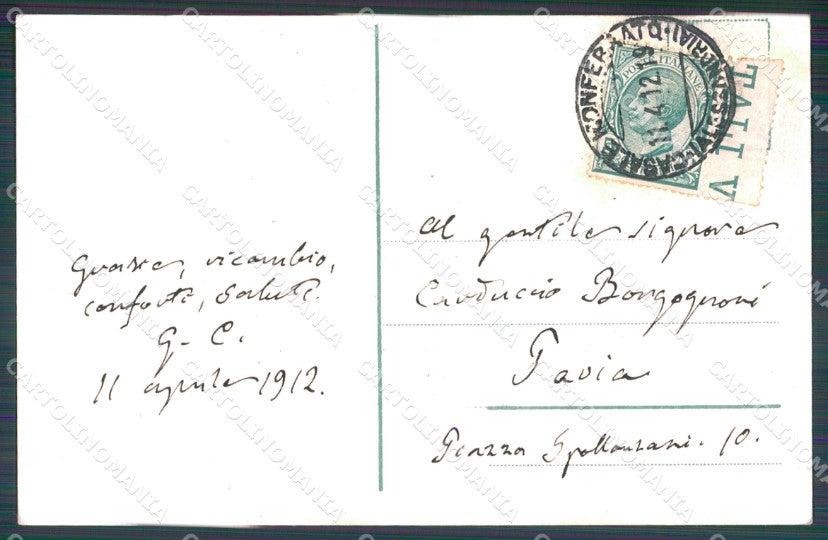 Grazie, ricambio,
conforti, saluti.
G. C.
11 aprile 1912.
CASALE MONFERRATO
11.4.12
POSTE ITALIANE
TALI V
Al gentile signore
Carduccio Borgognoni
Pavia
Piazza Spallanzani. 10.
CARTOLINOMANIA